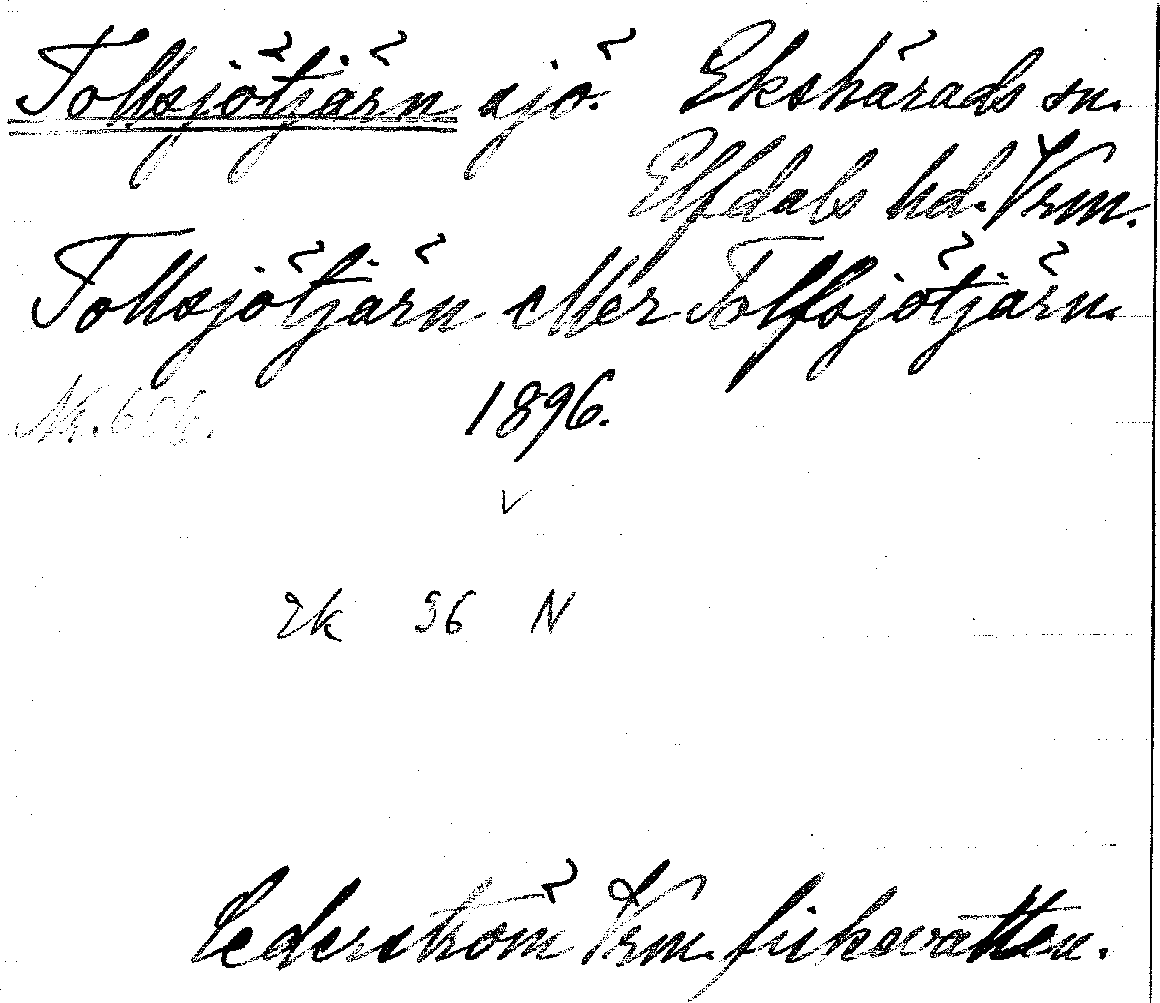 Tollsjötjärn sjö. Ekshärads sn.
Elfdals hd. Vrm.
Tollsjötjärn eller Tolfsjötjärn.
1896.
V
Ek 36 N
Cederström Vrm. fiskevatten.